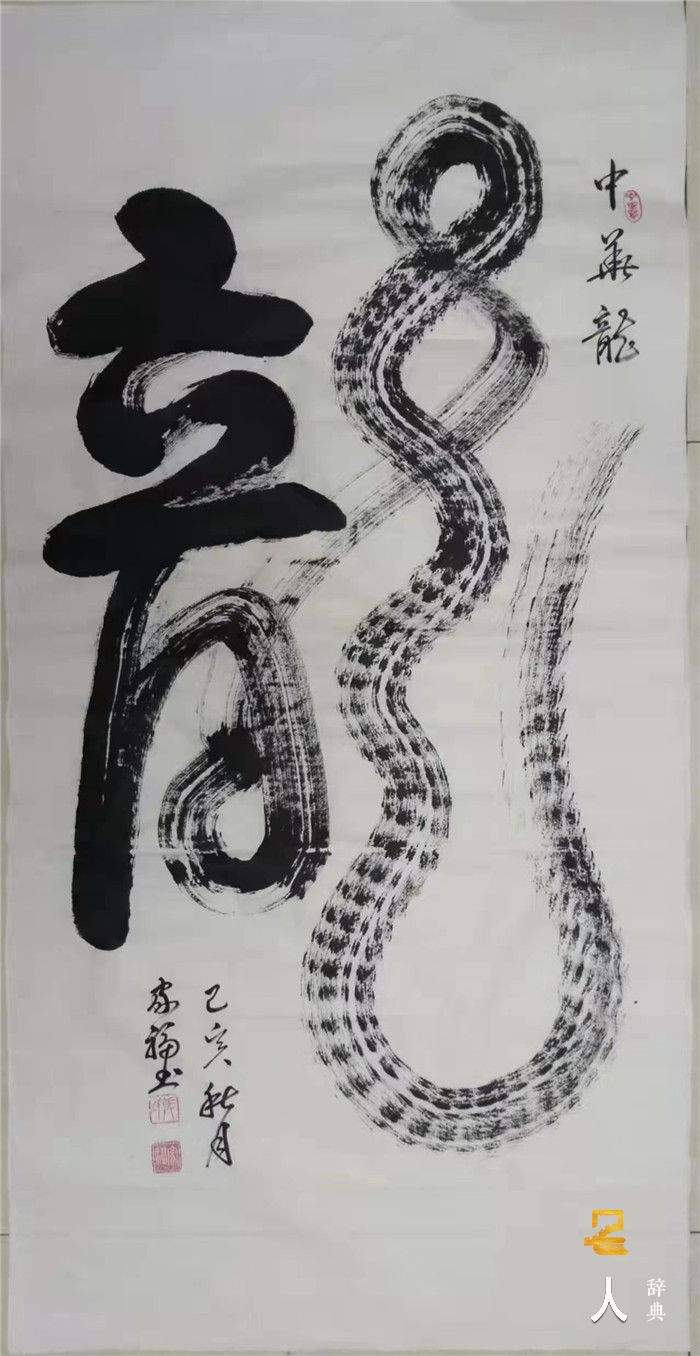 中華龍
龍
己亥秋月
家福书
名人
辞典